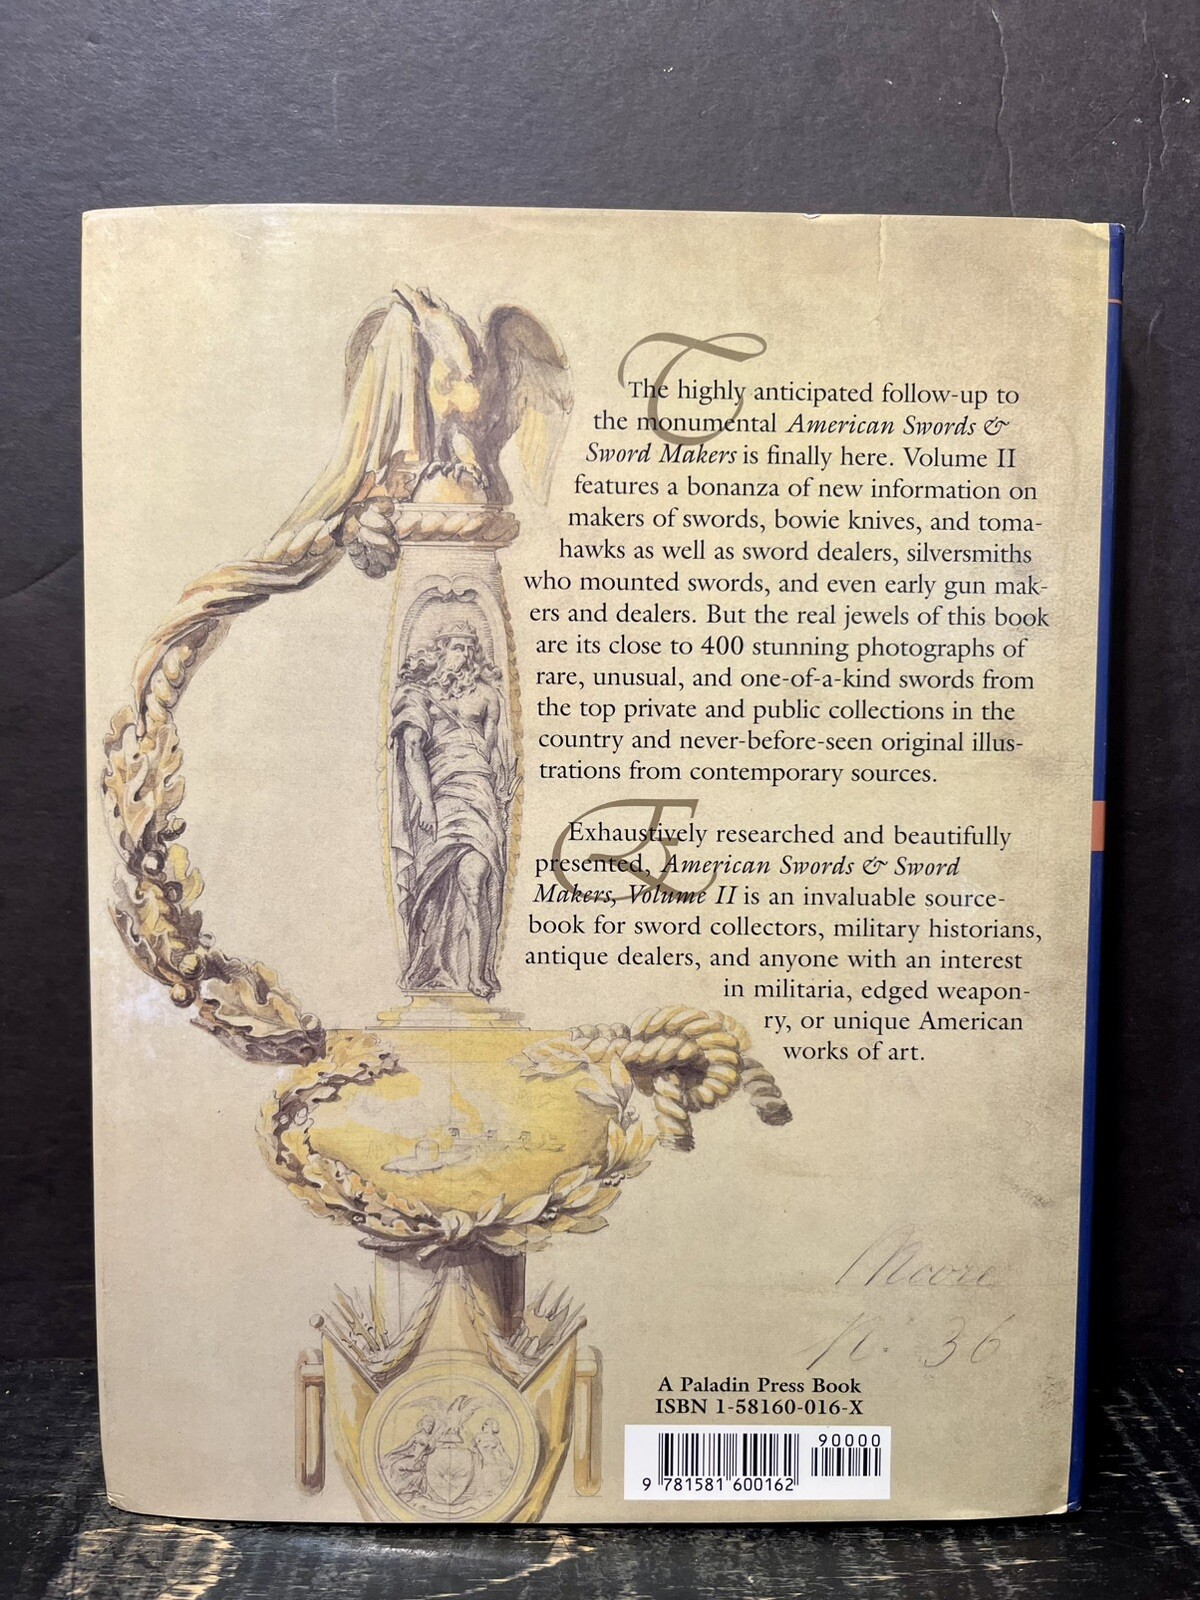 The highly anticipated follow-up to
the monumental American Swords &
Sword Makers is finally here. Volume II
features a bonanza of new information on
makers of swords, bowie knives, and toma-
hawks as well as sword dealers, silversmiths
who mounted swords, and even early gun mak-
ers and dealers. But the real jewels of this book
are its close to 400 stunning photographs of
rare, unusual, and one-of-a-kind swords from
the top private and public collections in the
country and never-before-seen original illus-
trations from contemporary sources.
Exhaustively researched and beautifully
presented, American Swords & Sword
Makers, Volume II is an invaluable source-
book for sword collectors, military historians,
antique dealers, and anyone with an interest
in militaria, edged weapon-
ry, or unique American
works of art.
Moore
N. 36
A Paladin Press Book
ISBN 1-58160-016-X
90000
9 781581 600162